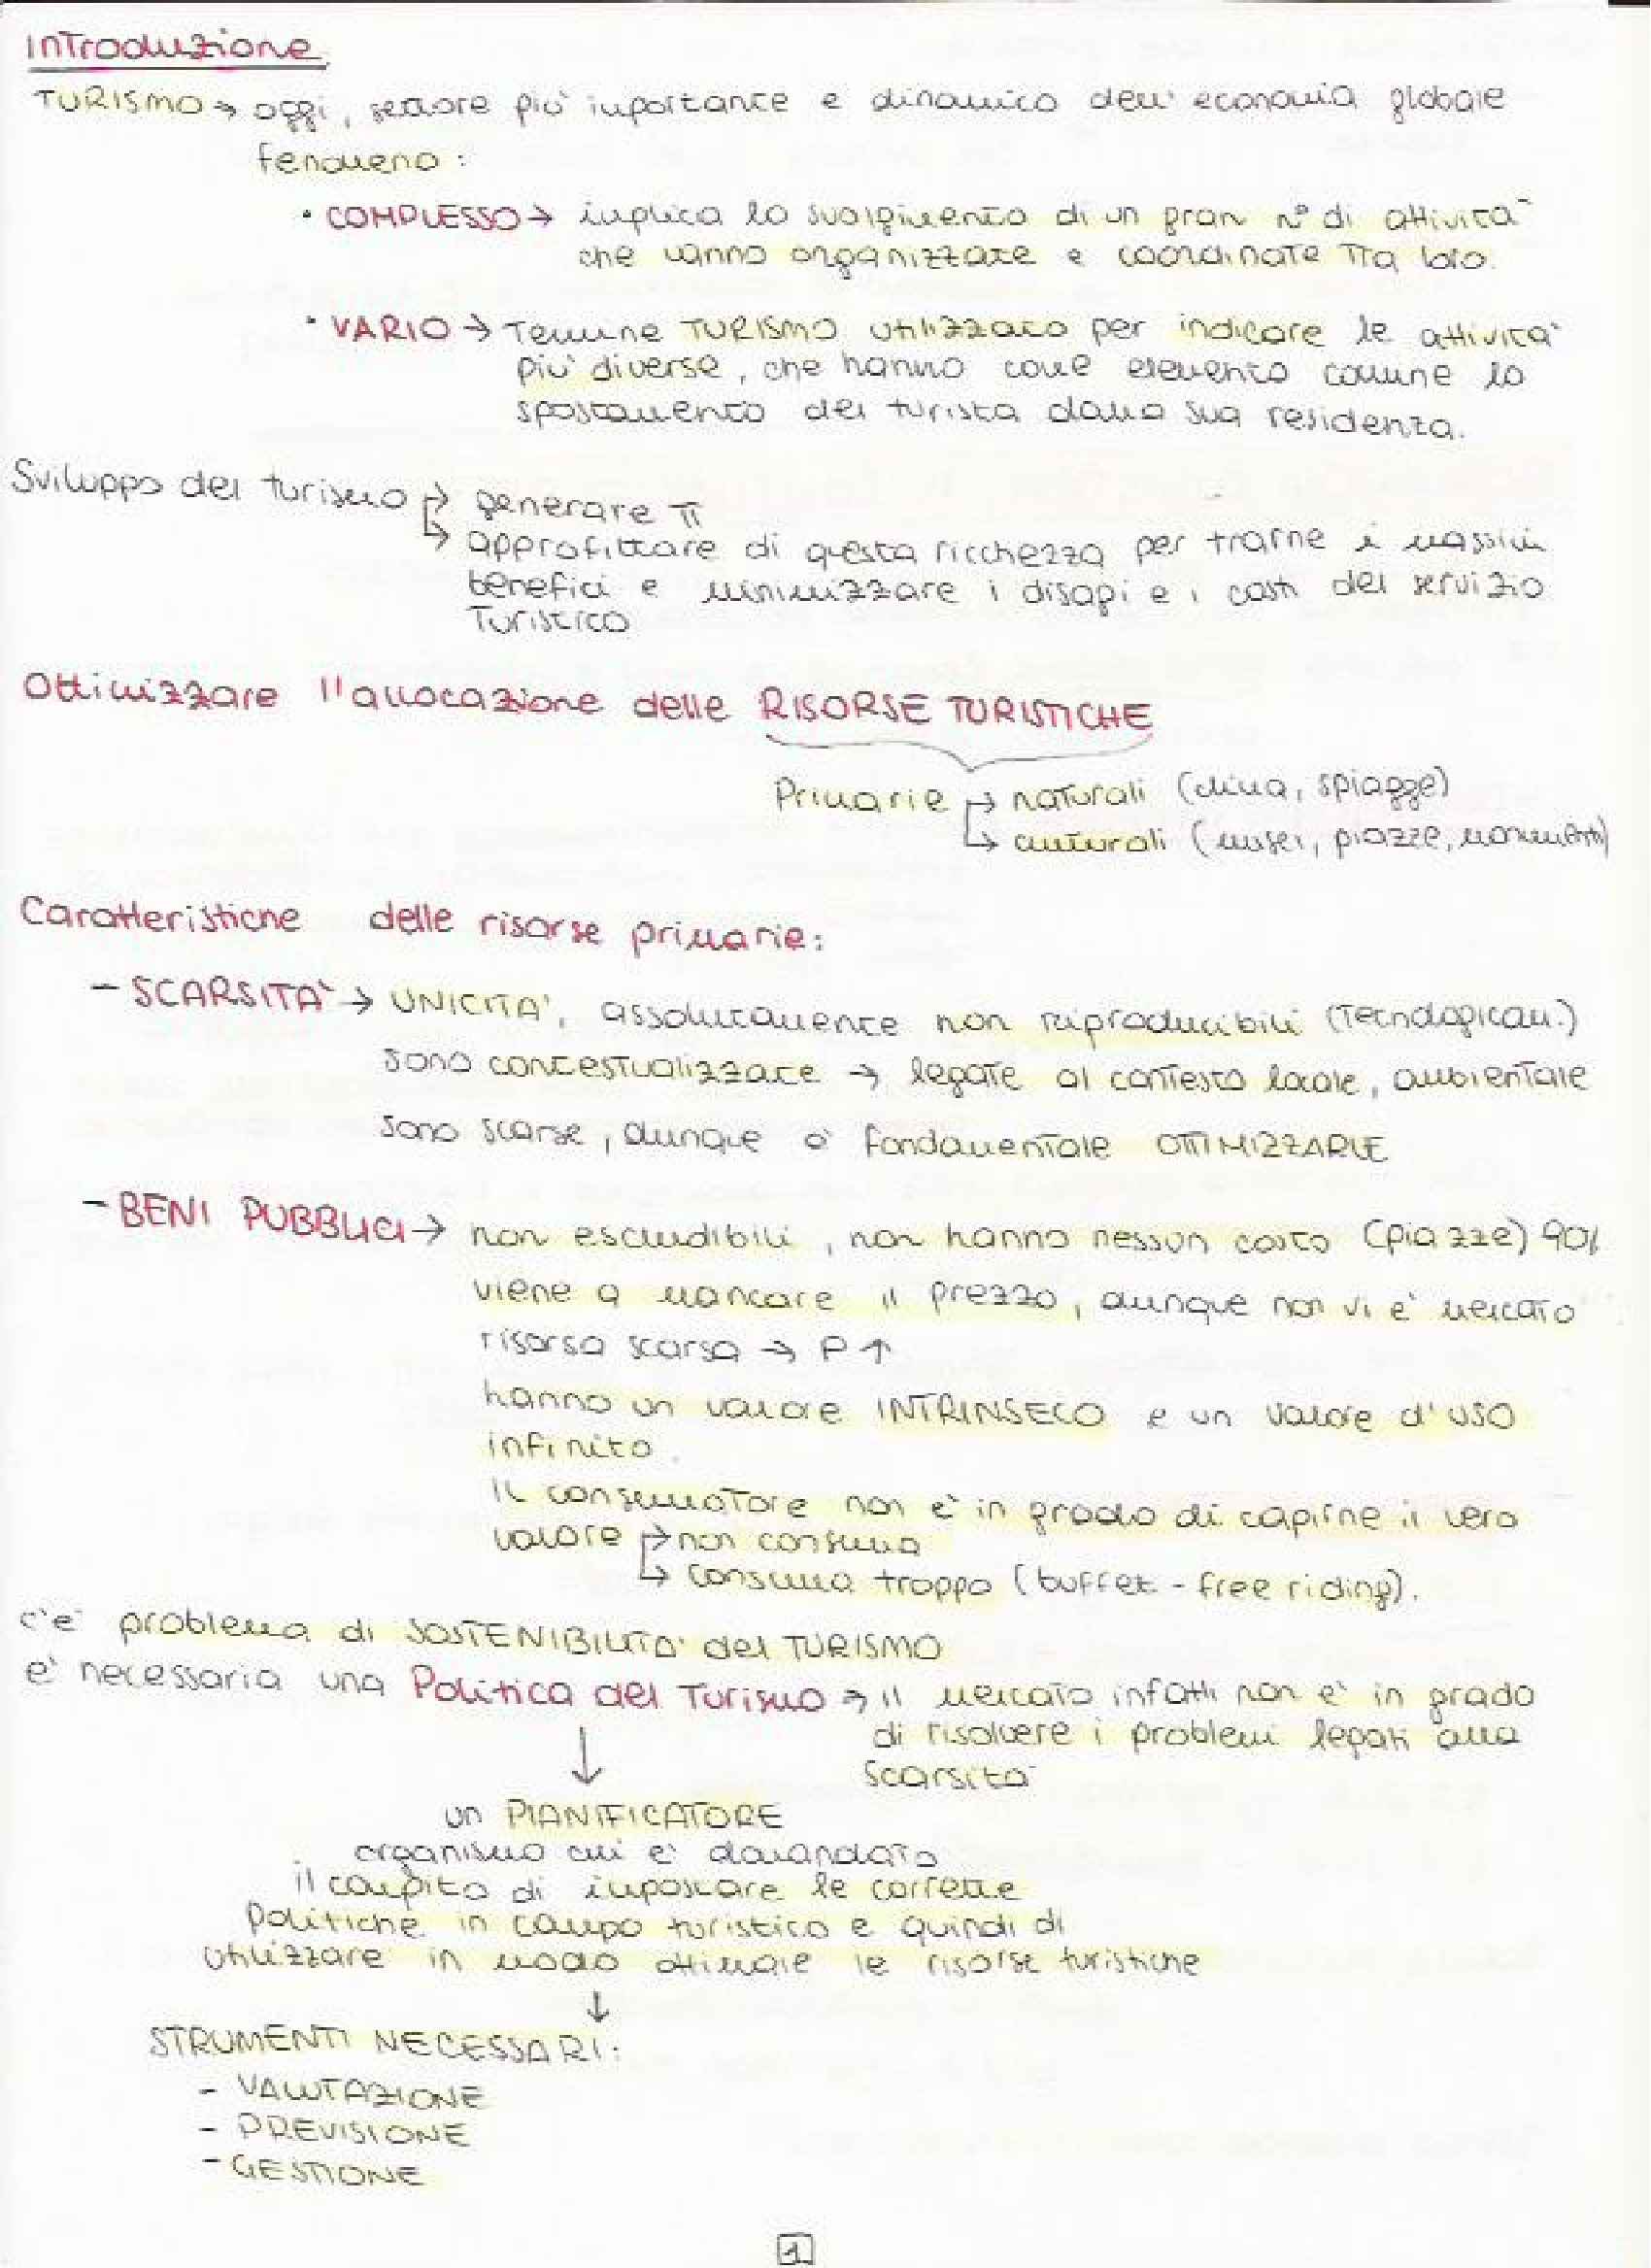 Introduzione
TURISMO → oggi, settore più importante e dinamico dell'economia globale
fenomeno :
• COMPLESSO → implica lo svolgimento di un gran n° di attività
che vanno organizzate e coordinate tra loro.
• VARIO → Termine TURISMO utilizzato per indicare le attività
più diverse, che hanno come elemento comune lo
spostamento del turista dalla sua residenza.
Sviluppo del turismo → generare π
→ approfittare di questa ricchezza per trarne i massimi
benefici e minimizzare i disagi e i costi del servizio
Turistico
Ottimizzare l'allocazione delle RISORSE TURISTICHE
Primarie → naturali (clima, spiagge)
→ culturali (musei, piazze, monumenti)
Caratteristiche delle risorse primarie:
- SCARSITA' → UNICITA', assolutamente non riproducibili (Tecnologicam.)
sono contestualizzate → legate al contesto locale, ambientale
sono scarse, dunque è fondamentale OTTIMIZZARLE
- BENI PUBBLICI → non escludibili, non hanno nessun costo (piazze) 90%
viene a mancare il prezzo, dunque non vi è mercato
risorsa scarsa → P ↑
hanno un valore INTRINSECO e un valore d'uso
infinito.
Il consumatore non è in grado di capirne il vero
valore → non consuma
→ consuma troppo (buffet - free riding).
c'è problema di SOSTENIBILITA' del TURISMO
è necessaria una Politica del Turismo → il mercato infatti non è in grado
di risolvere i problemi legati alla
scarsità
↓
un PIANIFICATORE
organismo cui è domandato
il compito di impostare le corrette
Politiche in campo turistico e quindi di
utilizzare in modo ottimale le risorse turistiche
↓
STRUMENTI NECESSARI:
- VALUTAZIONE
- PREVISIONE
- GESTIONE
1